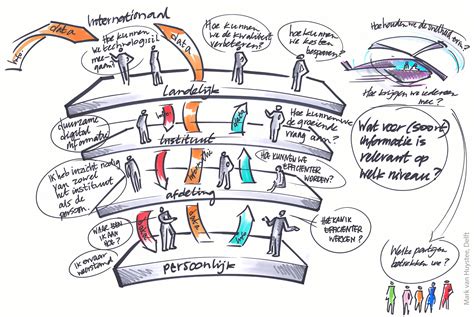 Internationaal
data
info
data
Hoe kunnen
we technologisch
meegaan?
Hoe kunnen
we de kwaliteit
verbeteren?
hoe kunnen
we kosten
besparen?
Hoe houden we de snelheid erin?
Hoe krijgen we iedereen
mee?
Landelijk
duurzame
digital
informatie
Hoe kunnen we
de groeiende
vraag aan?
Wat voor (soort)
informatie is
relevant op
welk niveau?
instituut
Ik heb inzicht nodig
van zowel
het instituut
als de
persoon.
HOE KUNNEN WE
EFFICIENTER
WORDEN?
afdeling
WAAR BEN
IK AAN
TOE?
data
HOE KAN IK
EFFICIENTER
WERKEN?
Ik ervaar
weerstand
persoonlijk
Welke partijen
betrekken we?
Mark van Huystee, Delft